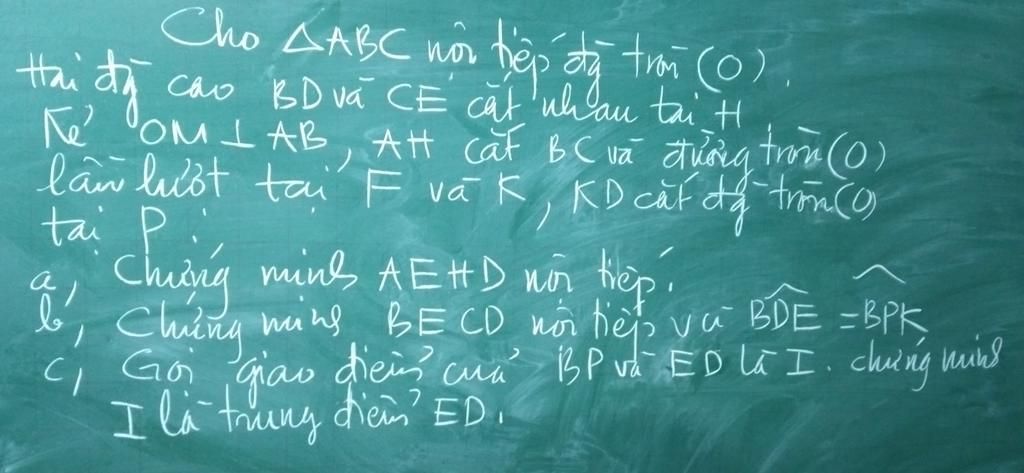 Cho △ABC nội tiếp đg̃ tròn (O).
Hai đg̃ cao BD và CE cắt nhau tại H
Kẻ OM ⊥ AB, AH cắt BC và đường tròn (O)
lần lượt tại F và K, KD cắt đg̃ tròn (O)
tại P.
a, Chứng minh AEHD nội tiếp.
b, Chứng minh BECD nội tiếp và \widehat{BDE} = \widehat{BPK}
c, Gọi giao điểm của BP và ED là I. chứng minh
I là trung điểm ED.